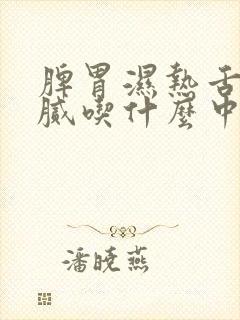 脾胃濕熱舌
膩喫什麼中
潘曉燕